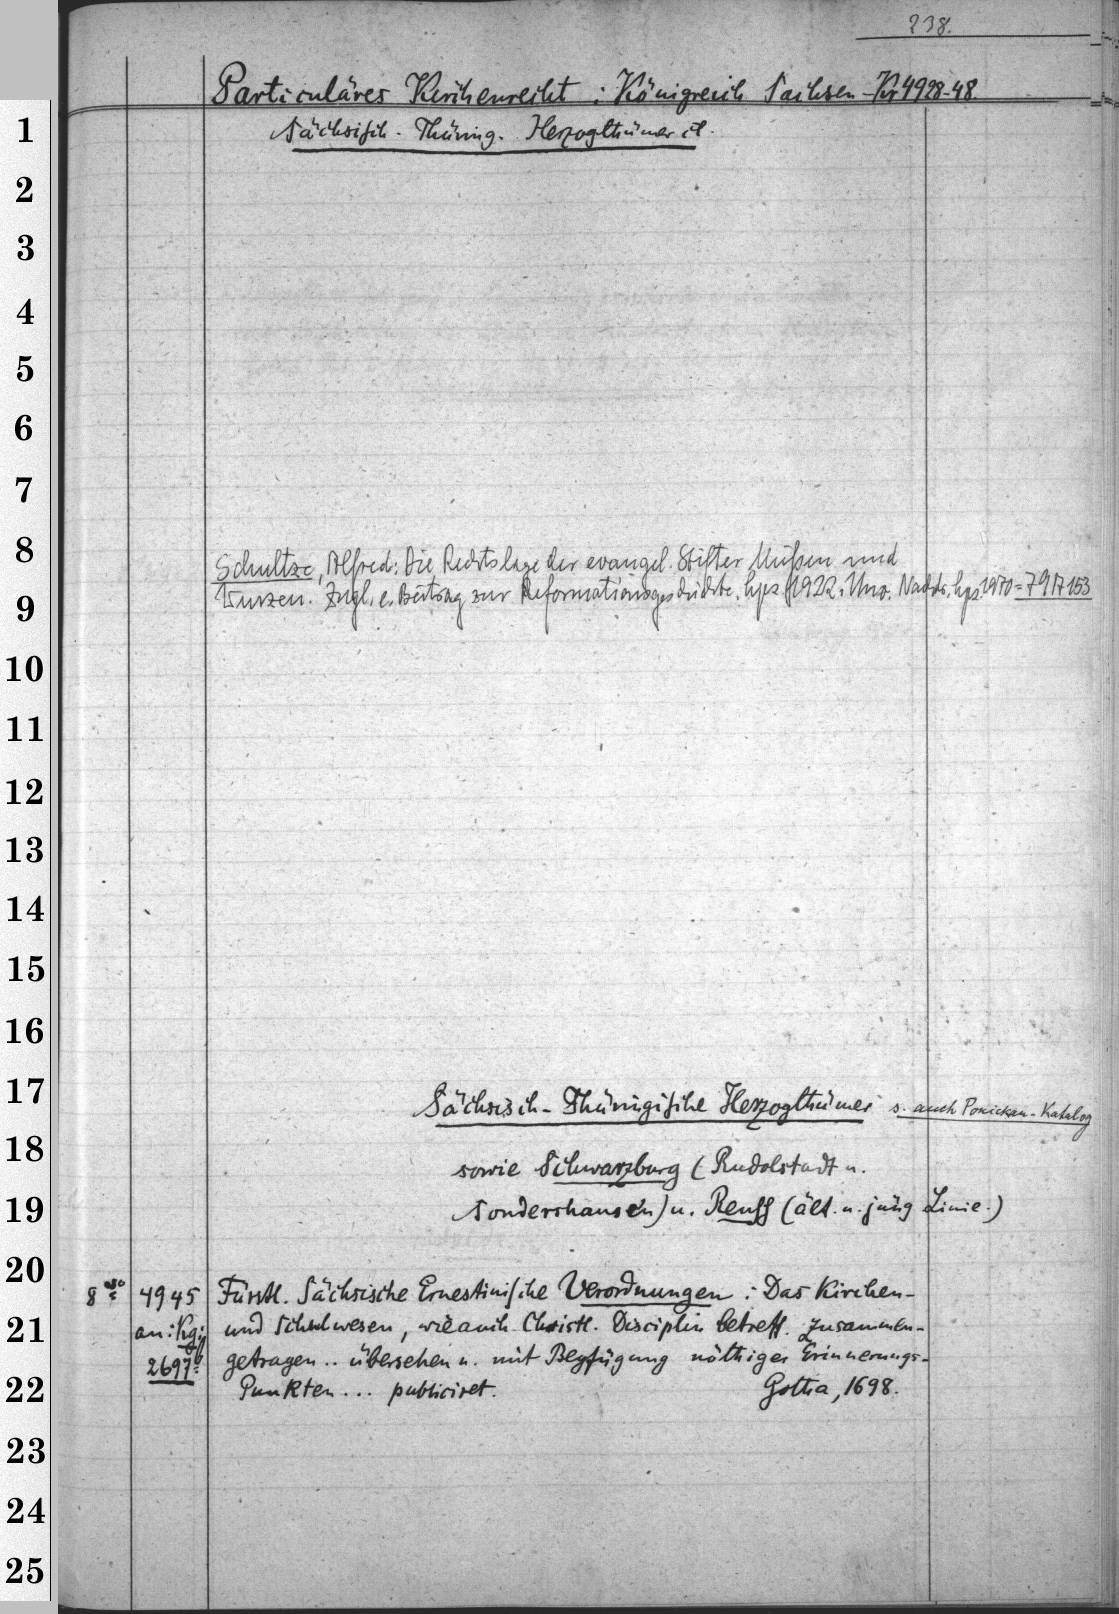 238.
Particuläres Kirchenrecht : Königreich Sachsen Kr 4928-48
Sächsisch-Thüring. Herzogthümer etc.
1
2
3
4
5
6
7
8
Schultze, Alfred: Die Rechtslage der evangel. Stifter Meißen und
Wurzen. Zugl. e. Beitrag zur Reformationsgeschichte. Lpz. 1922. Unv. Nachdr. Lpz. 1970 = 79 A 153
9
10
11
12
13
14
15
16
17
Sächsisch-Thüringische Herzogthümer s. auch Ponickau-Katalog
18
sowie Schwarzburg (Rudolstadt u.
19
Sondershausen) u. Reuß (ält. u. jüng Linie.)
20
8 4945 Fürstl. Sächsische Ernestinische Verordnungen : Das Kirchen-
21
an: Kg. und Schulwesen, wie auch Christl. Disciplin betreff. zusammen-
2697 getragen .. übersehen u. mit Beyfügung nöthiger Erinnerungs-
22
Punkten ... publiciret. Gotha, 1698.
23
24
25